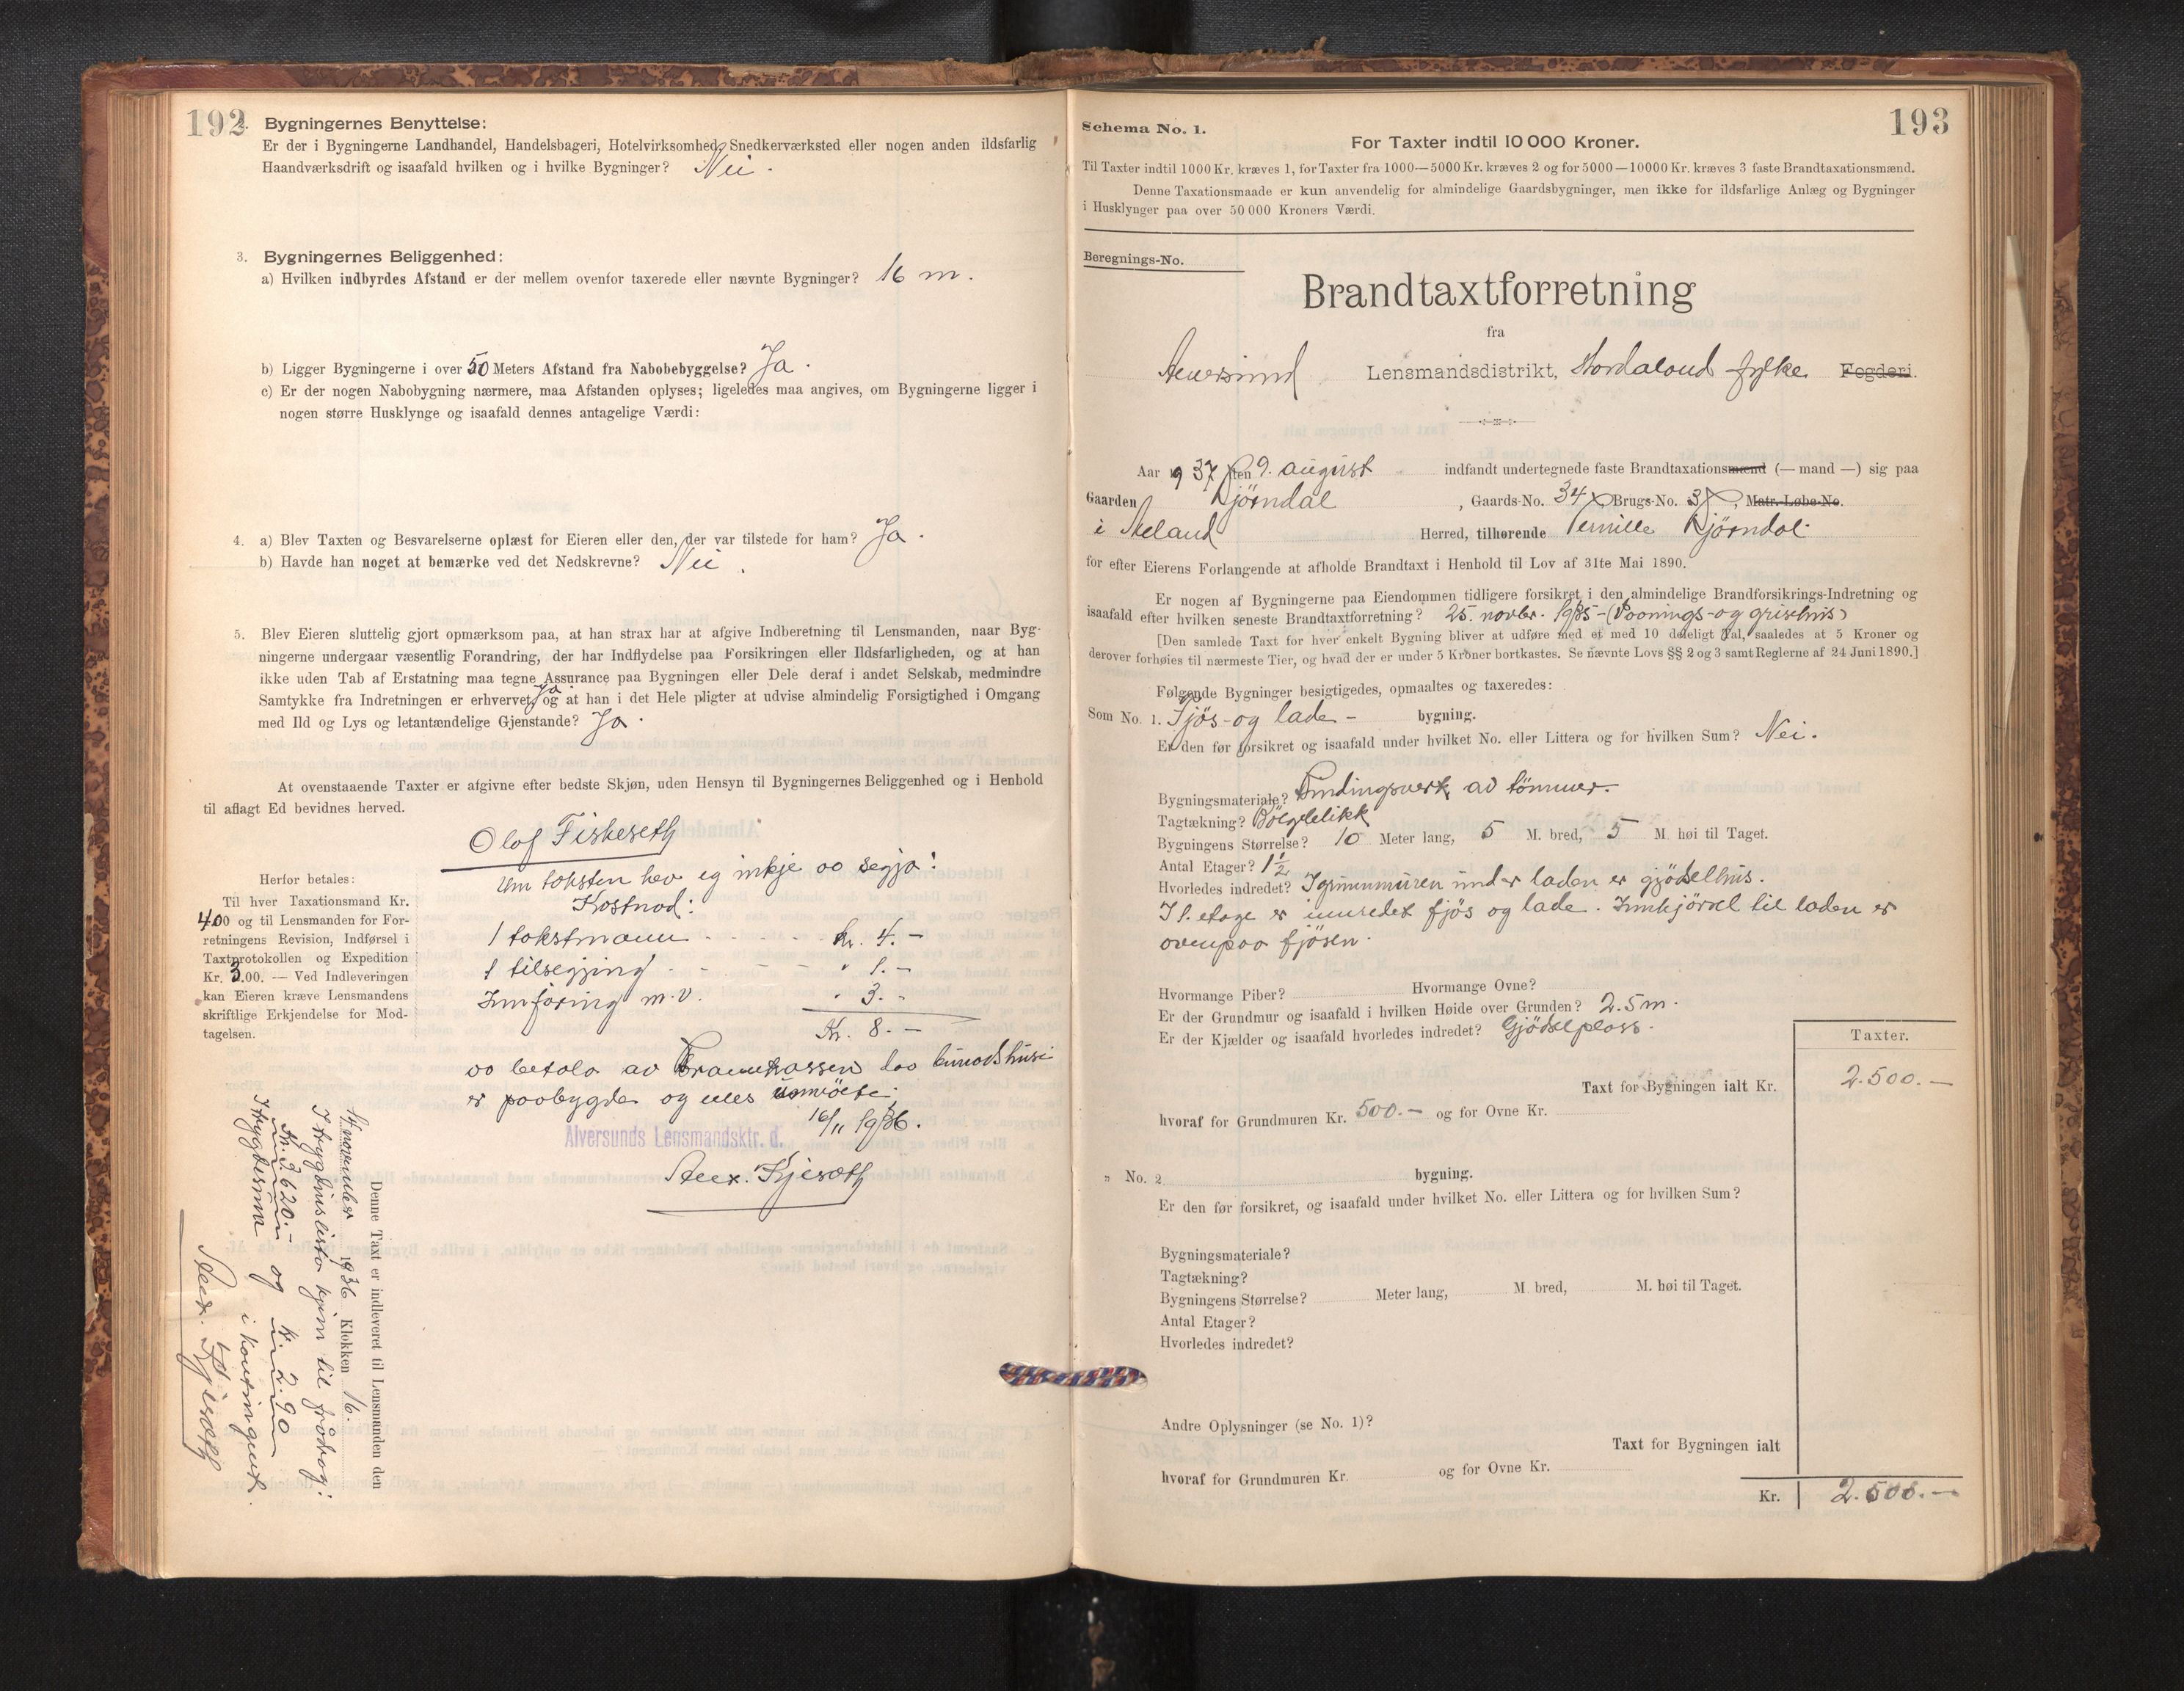 192
2. Bygningernes Benyttelse:
Er der i Bygningerne Landhandel, Handelsbageri, Hotelvirksomhed, Snedkerværksted eller nogen anden ildsfarlig
Haandværksdrift og isaafald hvilken og i hvilke Bygninger? Nei.
3. Bygningernes Beliggenhed:
a) Hvilken indbyrdes Afstand er der mellem ovenfor taxerede eller nævnte Bygninger? 16 m.
b) Ligger Bygningerne i over 50 Meters Afstand fra Nabobebyggelse? Ja.
c) Er der nogen Nabobygning nærmere, maa Afstanden oplyses; ligeledes maa angives, om Bygningerne ligger i
nogen større Husklynge og isaafald dennes antagelige Værdi:
4. a) Blev Taxten og Besvarelserne oplæst for Eieren eller den, der var tilstede for ham? Ja.
b) Havde han noget at bemærke ved det Nedskrevne? Nei.
5. Blev Eieren sluttelig gjort opmærksom paa, at han strax har at afgive Indberetning til Lensmanden, naar Byg-
ningerne undergaar væsentlig Forandring, der har Indflydelse paa Forsikringen eller Ildsfarligheden, og at han
ikke uden Tab af Erstatning maa tegne Assurance paa Bygningen eller Dele deraf i andet Selskab, medmindre
Samtykke fra Indretningen er erhvervet, Ja og at han i det Hele pligter at udvise almindelig Forsigtighed i Omgang
med Ild og Lys og letantændelige Gjenstande? Ja.
At ovenstaaende Taxter er afgivne efter bedste Skjøn, uden Hensyn til Bygningernes Beliggenhed og i Henhold
til aflagt Ed bevidnes herved.
Olaf Fiskeseth
Um taksten hev eg inkje aa segja:
Kostnad:
1 takstmann - - - - kr. 4. -
1 tilsegjing - - - - " 1. -
Innføring m.v. " 3. -
Kr. 8. -
Herfor betales:
Til hver Taxationsmand Kr.
4.00 og til Lensmanden for For-
retningens Revision, Indførsel i
Taxtprotokollen og Expedition
Kr. 3.00. — Ved Indleveringen
kan Eieren kræve Lensmandens
skriftlige Erkjendelse for Mod-
tagelsen.
aa betala av Brannkassen daa bunadshusi
er paabygde og
16/11 1936.
Alversunds Lensmandsktr. d.
Alex. Kjeseth
Denne Taxt er indleveret til Lensmanden den
14 november 1936 Klokken 16.
I trygdingslista kjem til frådrag:
Kr. 3.620.- og kr. 2.90
i trygdesum i kontingent.
Alex. Kjeseth
193
Schema No. 1.
For Taxter indtil 10 000 Kroner.
Til Taxter indtil 1000 Kr. kræves 1, for Taxter fra 1000—5000 Kr. kræves 2 og for 5000—10000 Kr. kræves 3 faste Brandtaxationsmænd.
Denne Taxationsmaade er kun anvendelig for almindelige Gaardsbygninger, men ikke for ildsfarlige Anlæg og Bygninger
i Husklynger paa over 50 000 Kroners Værdi.
Beregnings-No.
Brandtaxtforretning
fra
Alversund Lensmandsdistrikt, Hordaland fylke Fogderi.
Aar 1937 den 9. august indfandt undertegnede faste Brandtaxationsmænd (— mand —) sig paa
Gaarden Kjörndal, Gaards-No. 34, Brugs-No. 3, Matr.-Løbe-No.
i Meland Herred, tilhørende Pernille Kjörndal
for efter Eierens Forlangende at afholde Brandtaxt i Henhold til Lov af 31te Mai 1890.
Er nogen af Bygningerne paa Eiendommen tidligere forsikret i den almindelige Brandforsikrings-Indretning og
isaafald efter hvilken seneste Brandtaxtforretning? 25. novbr. 1935 - (Vaanings- og grisehus)
[Den samlede Taxt for hver enkelt Bygning bliver at udføre med et med 10 deleligt Tal, saaledes at 5 Kroner og
derover forhøies til nærmeste Tier, og hvad der er under 5 Kroner bortkastes. Se nævnte Lovs §§ 2 og 3 samt Reglerne af 24 Juni 1890.]
Følgende Bygninger besigtigedes, opmaaltes og taxeredes:
Som No. 1. Fjös- og lade - bygning.
Er den før forsikret og isaafald under hvilket No. eller Littera og for hvilken Sum? Nei.
Bygningsmateriale? Bindingsverk av tömmer.
Tagtækning? Bölgeblikk
Bygningens Størrelse? 10 Meter lang, 5 M. bred, 5 M. høi til Taget.
Antal Etager? 1 1/2
Hvorledes indredet? I grunnmuren under laden er gjödselhus.
I 1. etage er innredet fjös og lade. Innkjörsel til laden er
ovenpaa fjösen.
Hvormange Piber? Hvormange Ovne?
Er der Grundmur og isaafald i hvilken Høide over Grunden? 2.5 m.
Er der Kjælder og isaafald hvorledes indredet? Gjödselplass.
Taxter.
Taxt for Bygningen ialt Kr. 2.500. —
hvoraf for Grundmuren Kr. 500. — og for Ovne Kr.
" No. 2 bygning.
Er den før forsikret, og isaafald under hvilket No. eller Littera og for hvilken Sum?
Bygningsmateriale?
Tagtækning?
Bygningens Størrelse? Meter lang, M. bred, M. høi til Taget.
Antal Etager?
Hvorledes indredet?
Andre Oplysninger (se No. 1)?
Taxt for Bygningen ialt
hvoraf for Grundmuren Kr. og for Ovne Kr.
Kr. 2.500. —